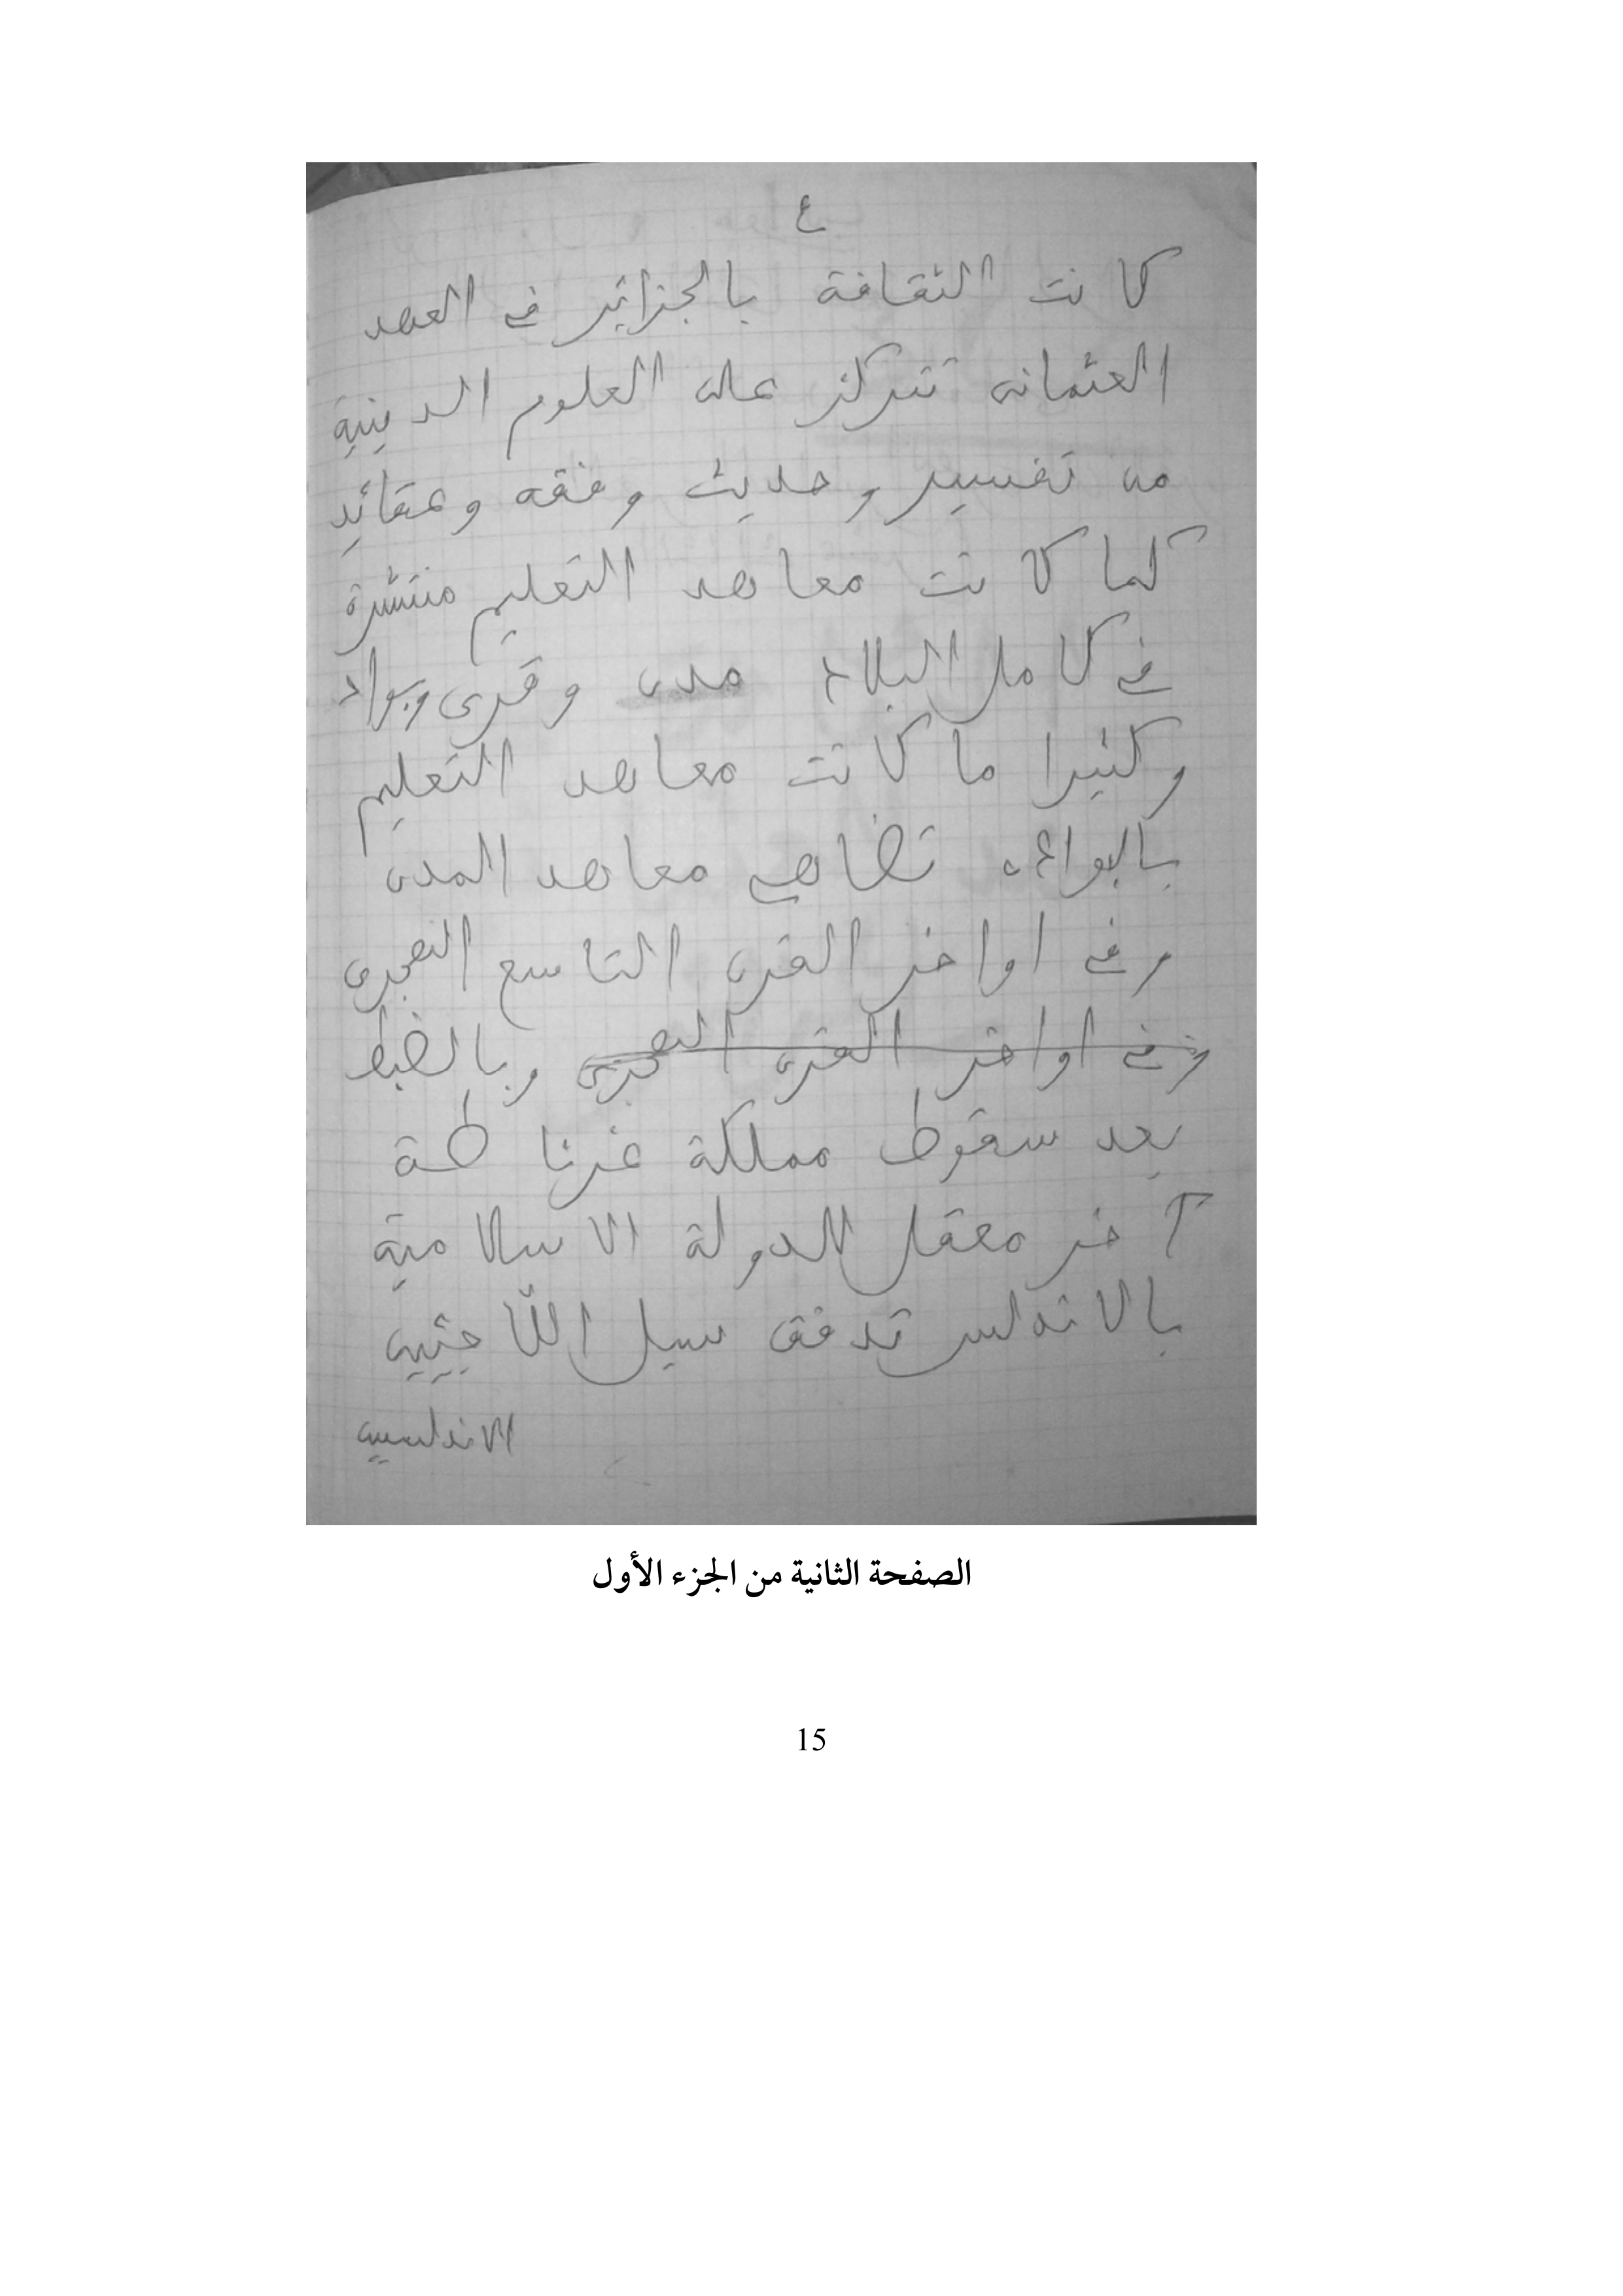 ع
كانت الثقافة بالجزائر في العهد
العثماني تتركز على العلوم الدينية
من تفسير وحديث وفقه وعقائد
كما كانت معاهد التعليم منتشرة
في كامل البلاد مدن وقرى وبواد
وكثيرا ما كانت معاهد التعليم
بالبوادي تضاهي معاهد المدن
وفي اواخر القرن التاسع الهجري
وفي اواخر القرن الهجري وبالضبط
بعد سقوط مملكة غرناطة
آخر معقل للدولة الاسلامية
بالاندلس تدفق سيل اللاجئين
الاندلسيين
الصفحة الثانية من الجزء الأول
15